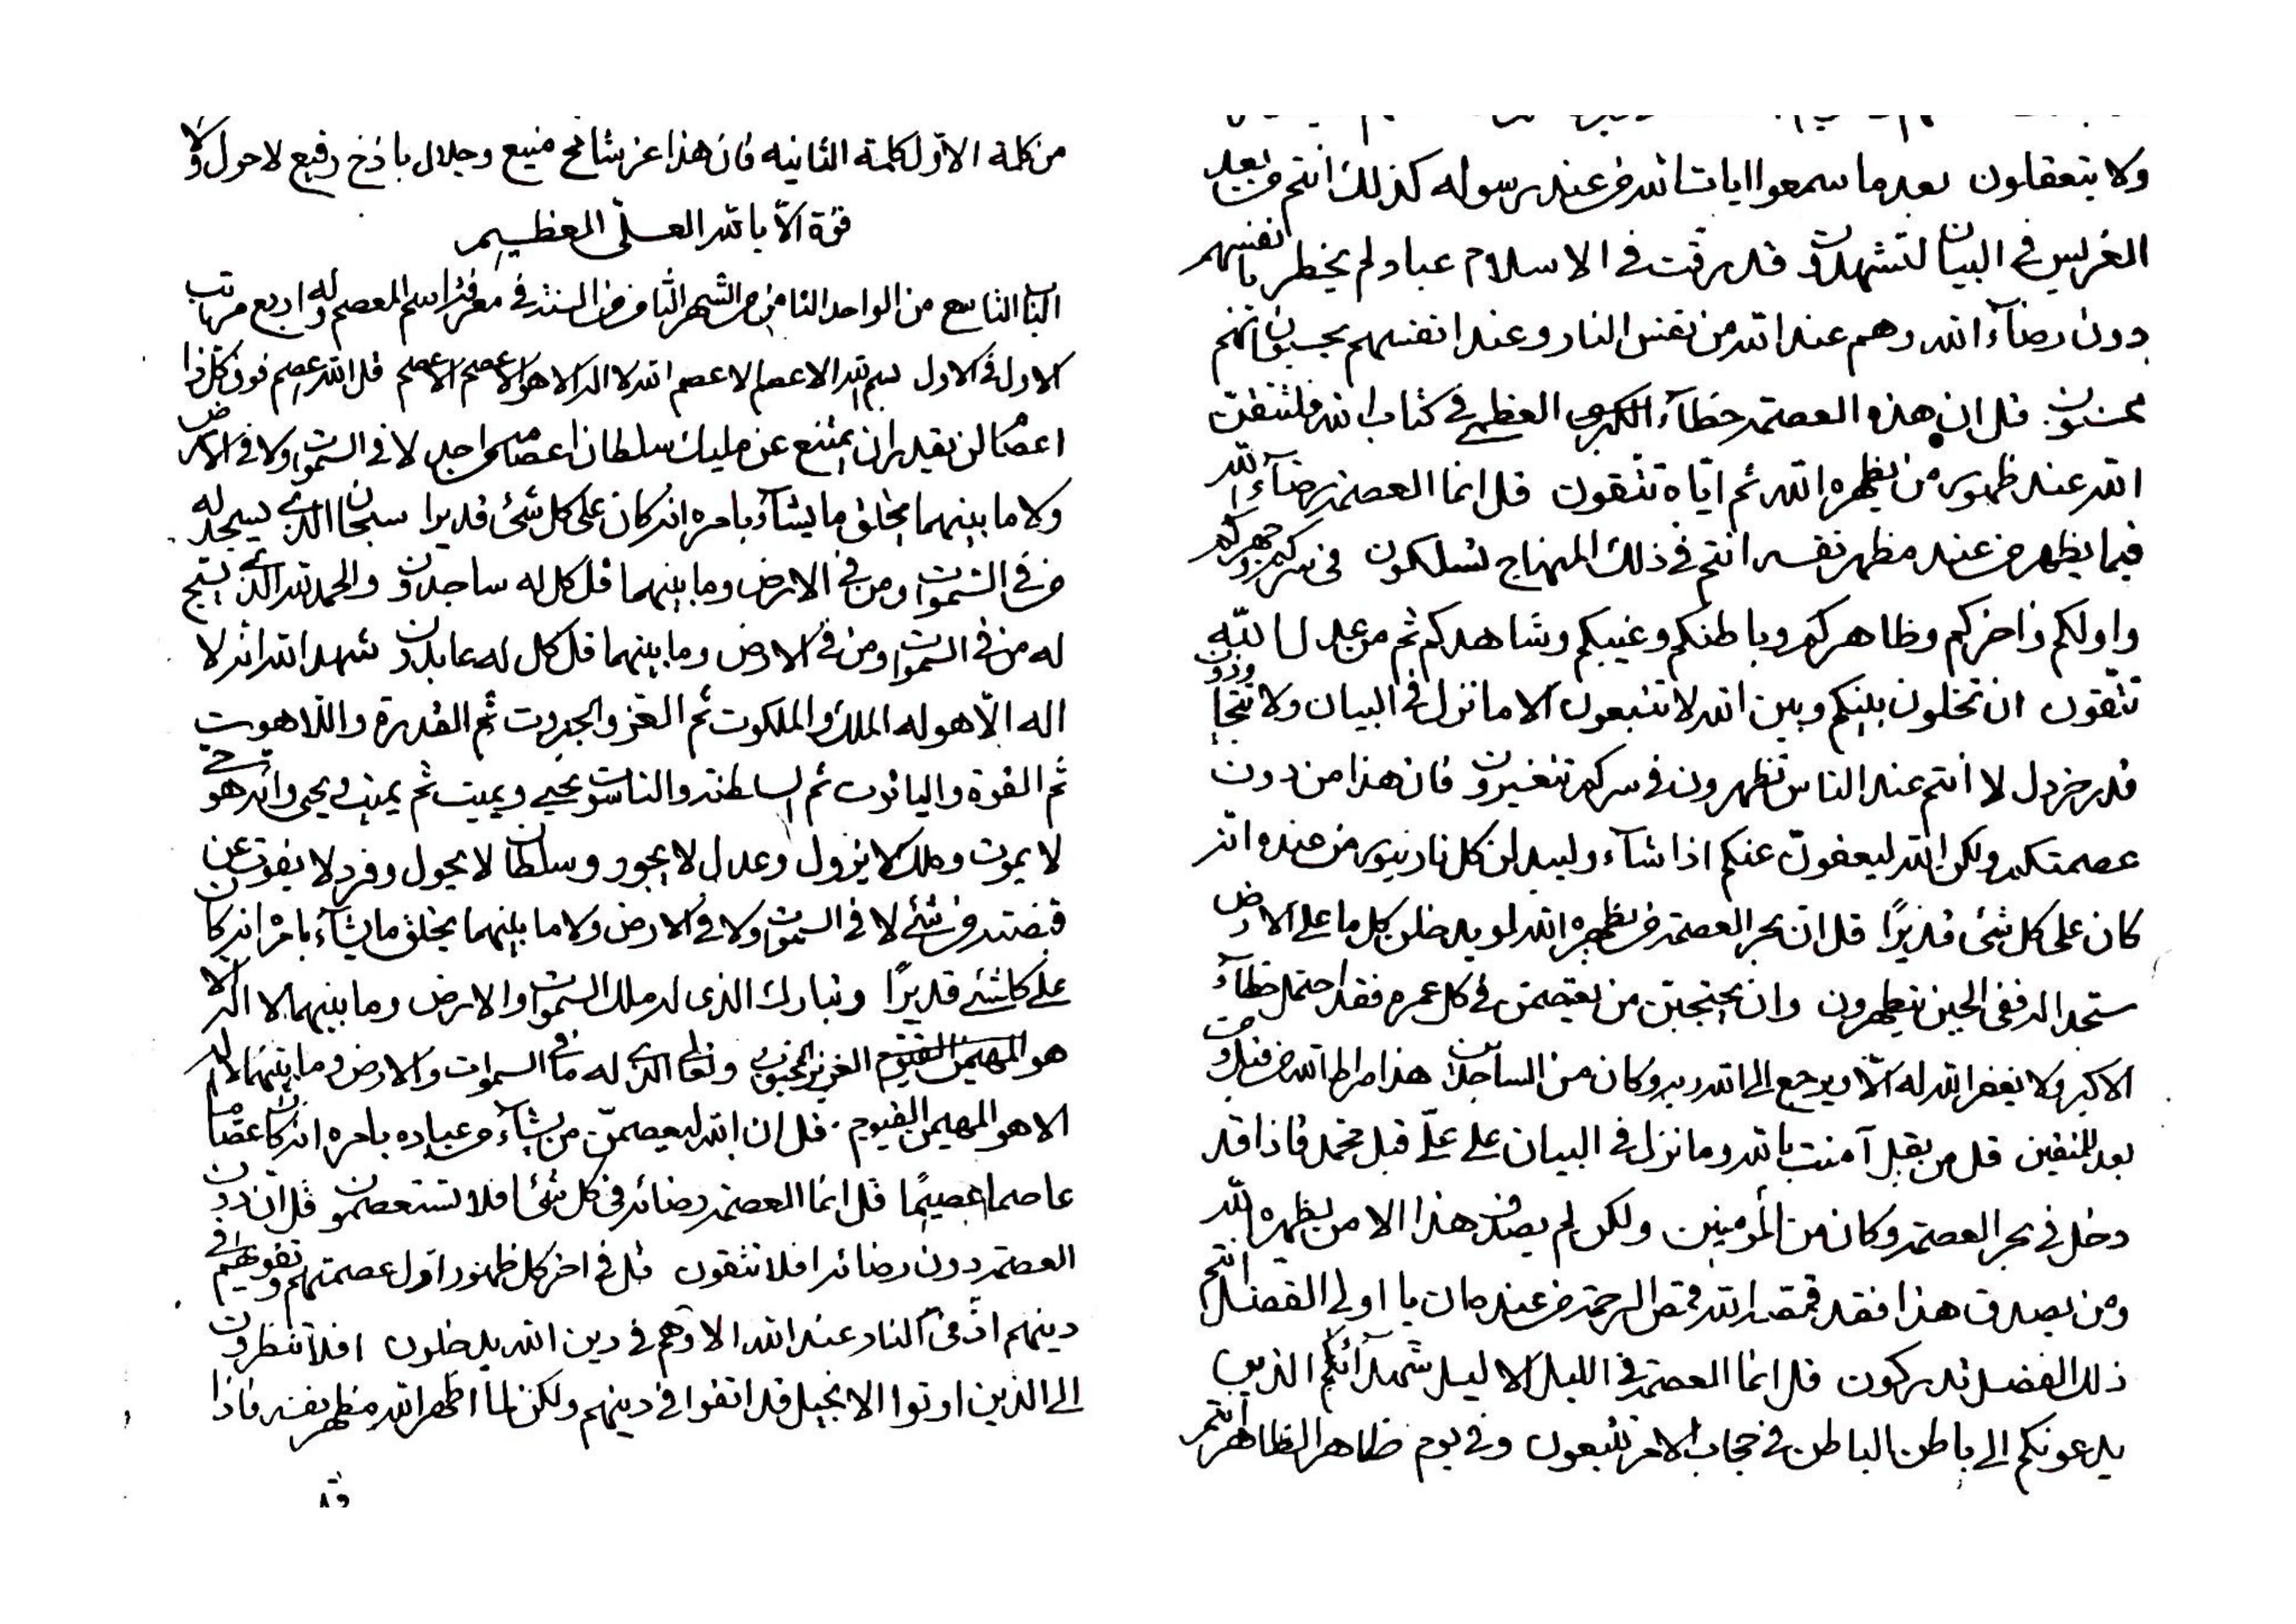 ولا يتعقلون بعد ما سمعوا ايات الله من عند رسوله كذلك انتم من بعد
الغرليس فى البيان لتشهدون قد رقت فى الاسلام عباد لم يخطر بانفسهم
دون رضآء الله وهم عند الله من نفس النار وعند انفسهم يحسبون انهم
محسنون قل ان هذه العصمة خطآء الكبرى العظمى فى كتاب الله فلتتقن
الله عند ظهور من يظهره الله ثم اياه تتقون قل انما العصمة رضآء الله
فيما يظهر من عند مظهر نفسه انتم فى ذلك المنهاج تسلكون فى سركم وجهركم
واولكم واخركم وظاهركم وباطنكم وغيبكم وشاهدكم ثم من عدل الله
تتقون ان تخلون بينكم وبين الله لا تتبعون الا ما نزل فى البيان ولا تتجاوزون
قدر خردل لا انتم عند الناس تظهرون فى سركم تتغيرون فان هذا من دون
عصمتكم ولكن الله ليعفون عنكم اذا شآء وليبدلن كل نار بنور من عنده انه
كان على كل شئ قديرًا قل ان بحر العصمة من يظهره الله لو يدخلن كل ما على الارض
ففى الحين يتطهرون وان يحتجبن من يعتصمن فى كل عمره فقد احتمل خطآء
الاكبر ولا يغفر الله له الا ويرجع الى الله ربه وكان من الساجدين هذا صراط الله من قبل ومن
بعد للمتقين قل من يقبل آمنت بالله وما نزل فى البيان على علىّ قبل محمد فاذا قد
دخل فى بحر العصمة وكان من المؤمنين ولكن لم يصدق هذا الا من يظهره الله
ومن يصدق هذا فقد قمّصه الله قمص الرحمة من عنده ان يا اولى الفضل انتم
ذلك الفضل تدركون قل انما العصمة فى الليل الاليل شهدآئكم الذين
يدعونكم الى باطن الباطن فى حجاب الامر تتبعون وفى يوم ظاهر الظاهر انتم
من كلمة الاول كلمة الثانيه فان هذا عز شامخ منيع وجلال باذخ رفيع لا حول ولا
قوة الّا بالله العلى العظيم
الباب التاسع من الواحد الثامن من الشهر الثامن من السنة فى معرفة اسم المعصم وله اربع مراتب
الاول فى الاول بسم الله الاعصم الاعصم الله لا اله الا هو الاعصم الاعصم قل الله عصم فوق كل ذا
اعصام لن يقدر ان يمتنع عن مليك سلطان اعصامه من احد لا فى السموات ولا فى الارض
ولا ما بينهما يخلق ما يشآء بامره انه كان على كل شئ قديرا سبحان الذى يسجد له
من فى السموات ومن فى الارض وما بينهما قل كل له ساجدون والحمد لله الذى يسبح
له من فى السموات ومن فى الارض وما بينهما قل كل له عابدون شهد الله انه لا
اله الّا هو له الملك والملكوت ثم العز والجبروت ثم القدرة واللاهوت
ثم القوة والياقوت ثم السلطنة والناسوت يحيى ويميت ثم يميت ويحيى وانه هو حى
لا يموت وملك لا يزول وعدل لا يجور وسلطان لا يحول وفرد لا يفوت عن
قبضته من شئ لا فى السموات ولا فى الارض ولا ما بينهما يخلق ما يشآء بامره انه كان
على كل شئ قديرًا وتبارك الذى له ملك السموات والارض وما بينهما لا اله الا
هو العزيز المحبوب وتعالى الذى له ما فى السموات والارض وما بينهما لا اله
الا هو المهيمن القيوم. قل ان الله ليعصمنّ من يشآء من عباده بامره انه كان عصاما
عاصما عصيمًا قل انما العصمة رضائه فى كل شئ افلا تستعصمون قل ان دون
العصمة دون رضائه افلا تتقون قل فى اخر كل ظهور اول عصمتهم وتقويهم فى
دينهم اذ من النار عند الله الا وهم فى دين الله يدخلون افلا تنظرون
الى الذين اوتوا الانجيل قد اتقوا فى دينهم ولكن لما اظهر الله مظهر نفسه فاذا